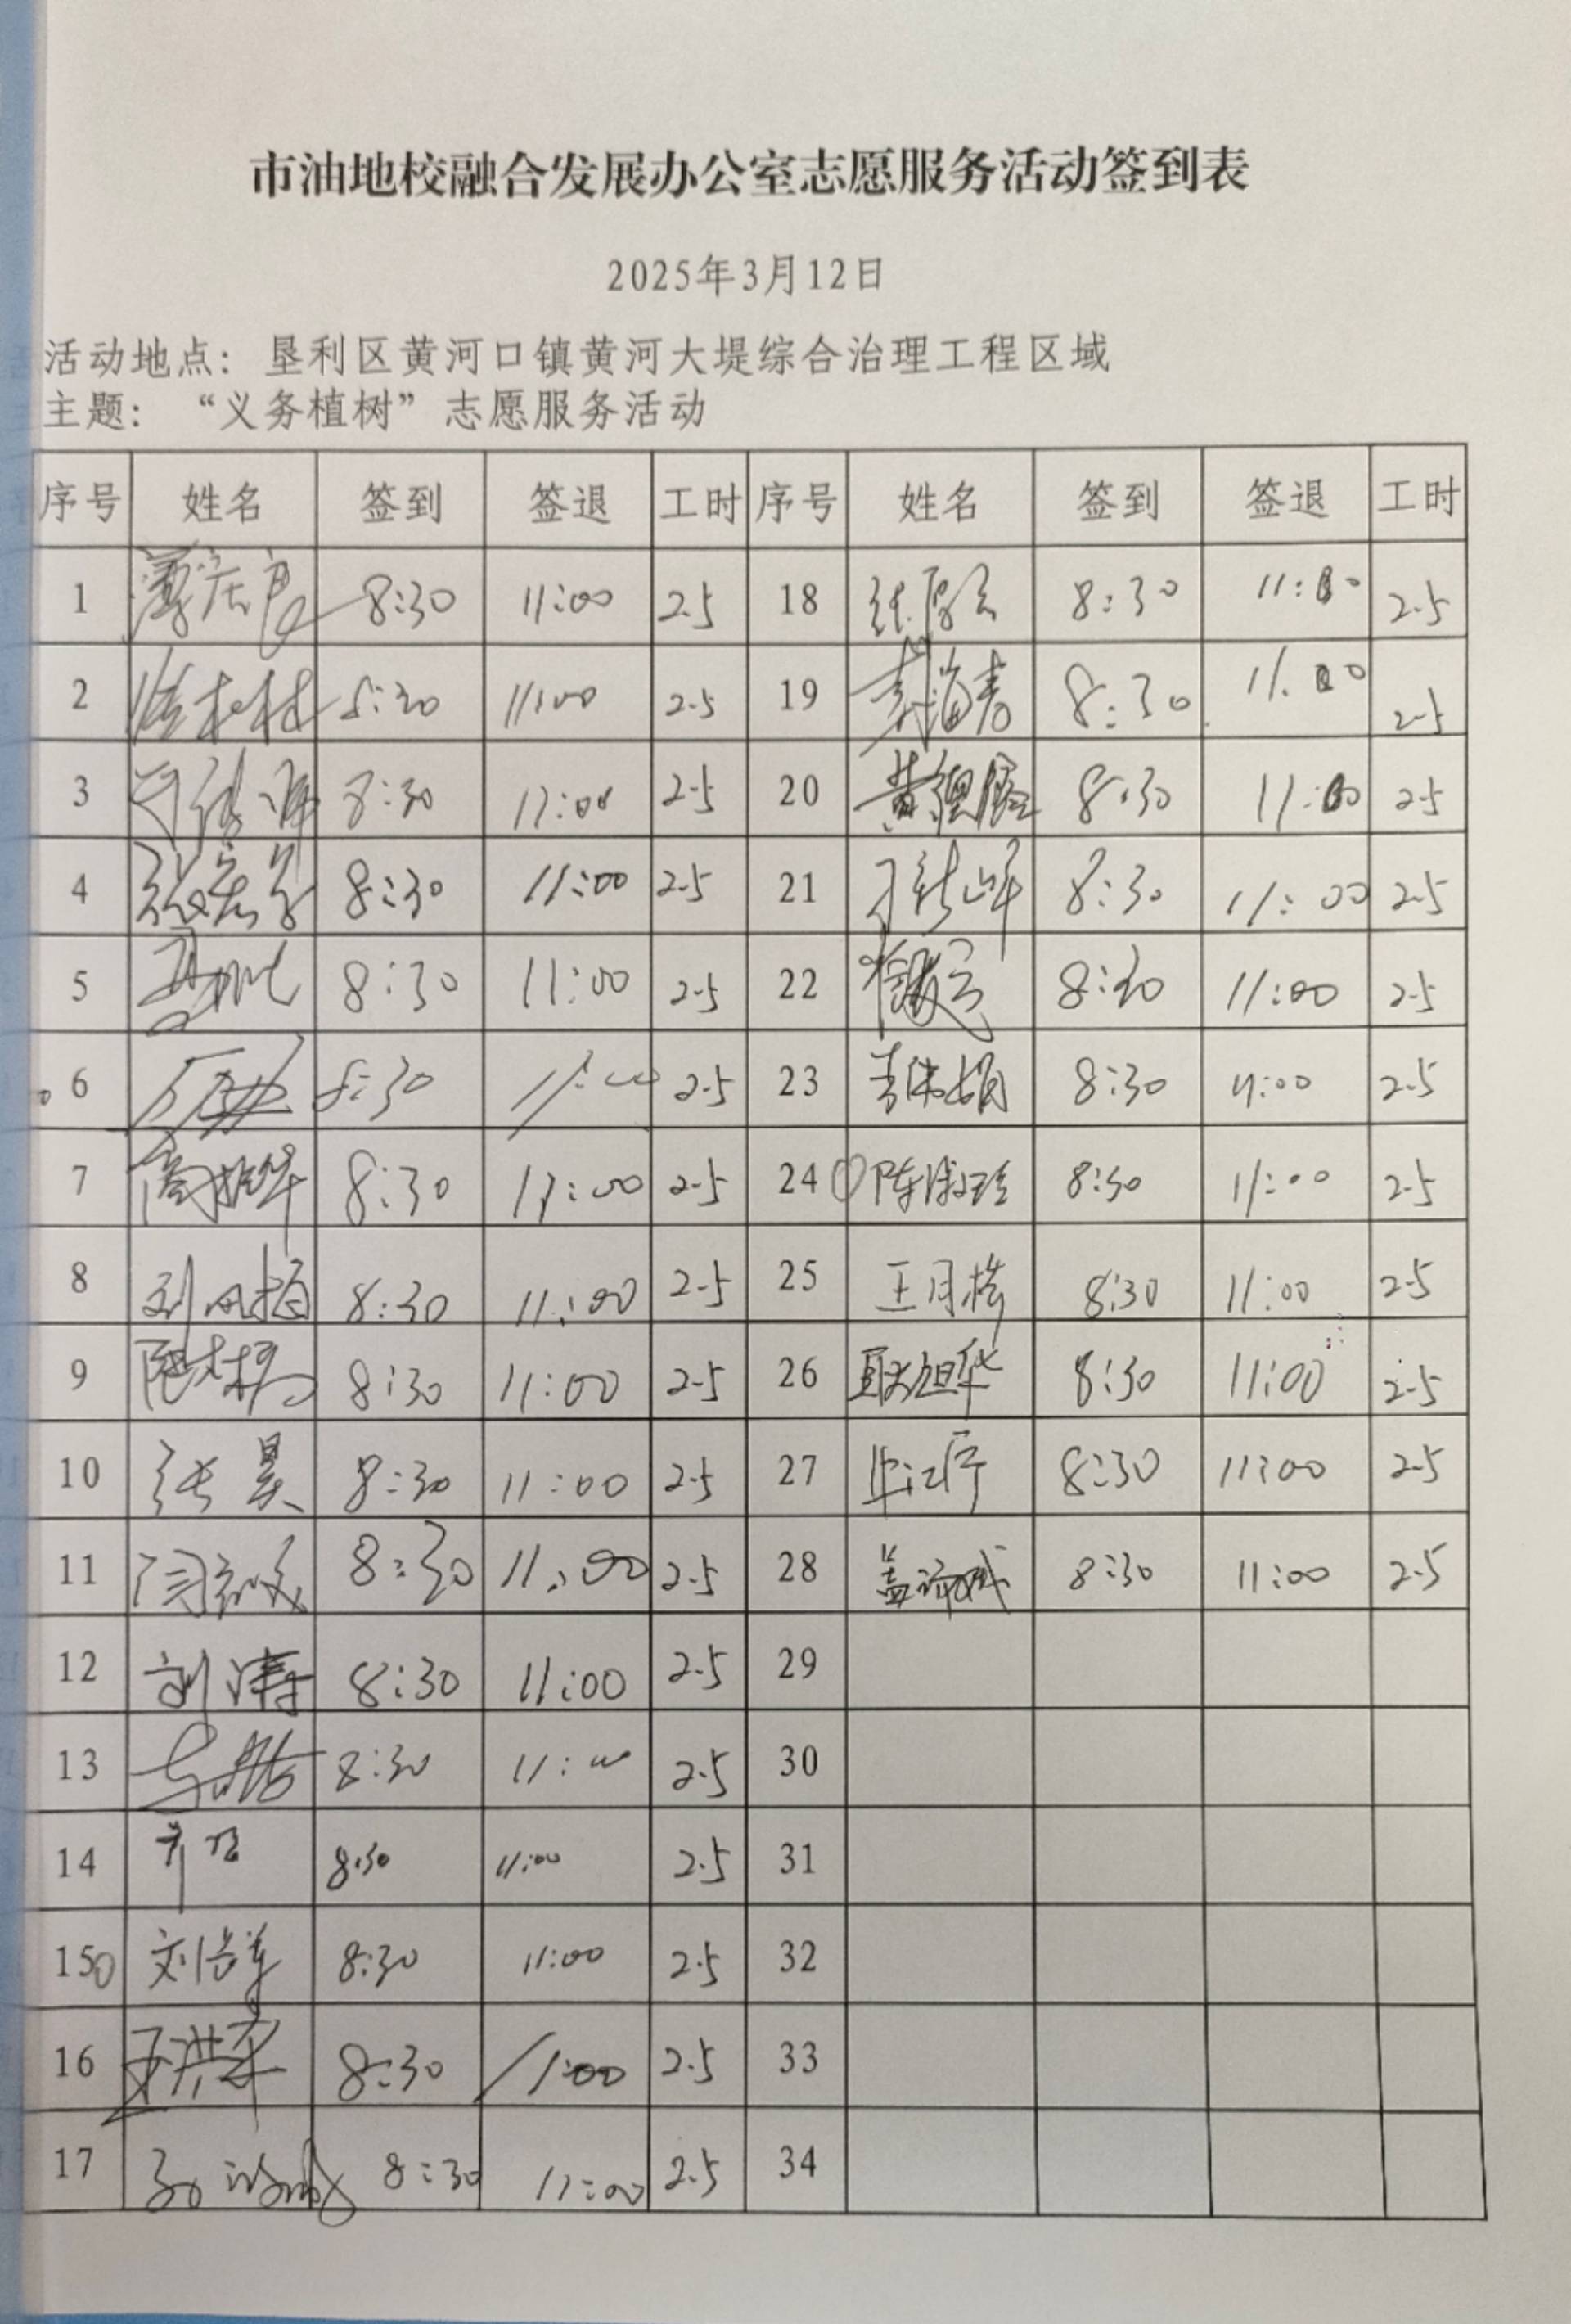 市油地校融合发展办公室志愿服务活动签到表
2025年3月12日
活动地点：垦利区黄河口镇黄河大堤综合治理工程区域
主题：“义务植树”志愿服务活动
序号 姓名 签到 签退 工时 序号 姓名 签到 签退 工时
1 8:30 11:00 2.5 18 8:30 11:00 2.5
2 8:30 11:00 2.5 19 8:30 11:00 2.5
3 8:30 11:00 2.5 20 8:30 11:00 2.5
4 8:30 11:00 2.5 21 8:30 11:00 2.5
5 8:30 11:00 2.5 22 8:30 11:00 2.5
6 8:30 11:00 2.5 23 8:30 11:00 2.5
7 8:30 11:00 2.5 24 8:30 11:00 2.5
8 8:30 11:00 2.5 25 8:30 11:00 2.5
9 8:30 11:00 2.5 26 8:30 11:00 2.5
10 张昊 8:30 11:00 2.5 27 8:30 11:00 2.5
11 8:30 11:00 2.5 28 8:30 11:00 2.5
12 刘涛 8:30 11:00 2.5 29
13 8:30 11:00 2.5 30
14 8:30 11:00 2.5 31
15 8:30 11:00 2.5 32
16 8:30 11:00 2.5 33
17 8:30 11:00 2.5 34